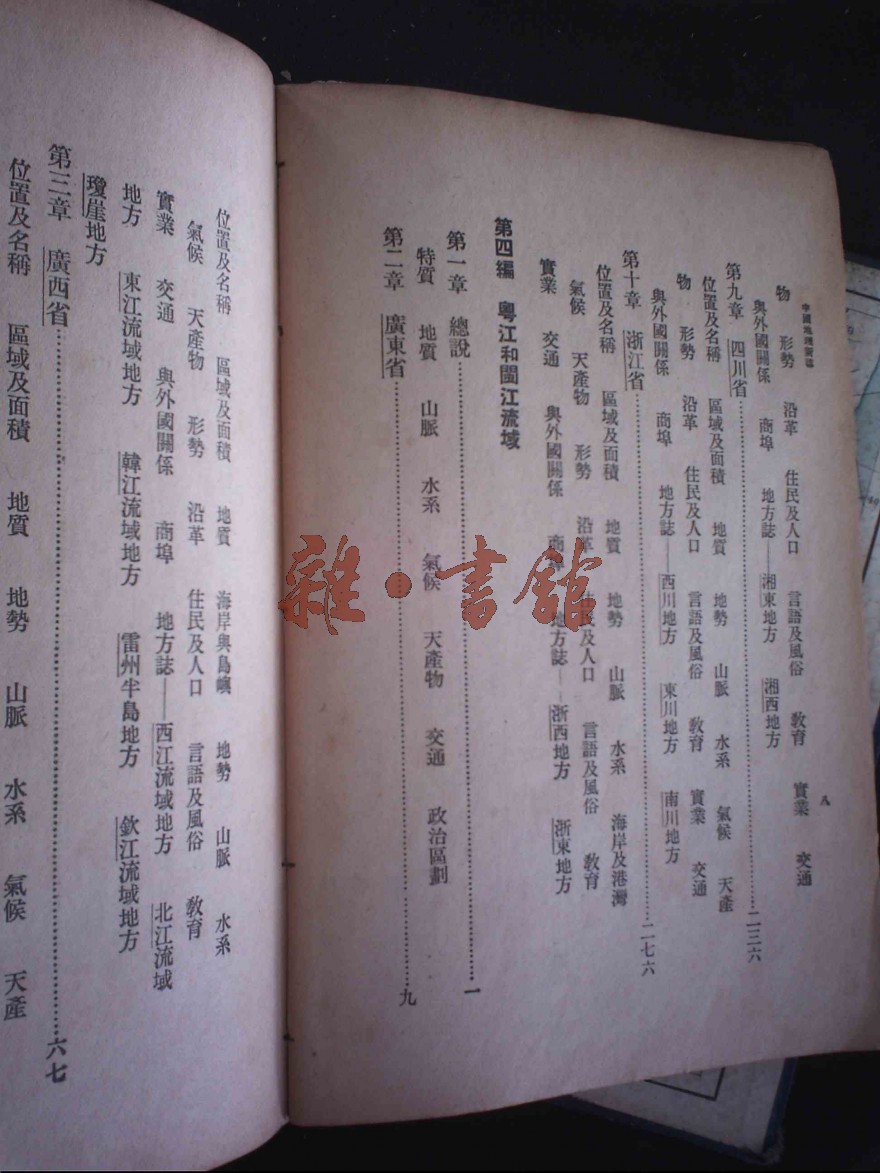 中國地理新誌
八
物 形勢 沿革 住民及人口 言語及風俗 教育 實業 交通
與外國關係 商埠 地方誌——湘東地方 湘西地方
第九章 四川省……二三六
位置及名稱 區域及面積 地質 地勢 山脈 水系 氣候 天產
物 形勢 沿革 住民及人口 言語及風俗 教育 實業 交通
與外國關係 商埠 地方誌——西川地方 東川地方 南川地方
第十章 浙江省……二七六
位置及名稱 區域及面積 地質 地勢 山脈 水系 海岸及港灣
氣候 天產物 形勢 沿革 住民及人口 言語及風俗 教育
實業 交通 與外國關係 商埠 地方誌——浙西地方 浙東地方
第四編 粵江和閩江流域
第一章 總說……一
特質 地質 山脈 水系 氣候 天產物 交通 政治區劃
第二章 廣東省……九
位置及名稱 區域及面積 地質 海岸與島嶼 地勢 山脈 水系
氣候 天產物 形勢 沿革 住民及人口 言語及風俗 教育
實業 交通 與外國關係 商埠 地方誌——西江流域地方 北江流域
地方 東江流域地方 韓江流域地方 雷州半島地方 欽江流域地方
瓊崖地方
第三章 廣西省……六七
位置及名稱 區域及面積 地質 地勢 山脈 水系 氣候 天產
雜·書館